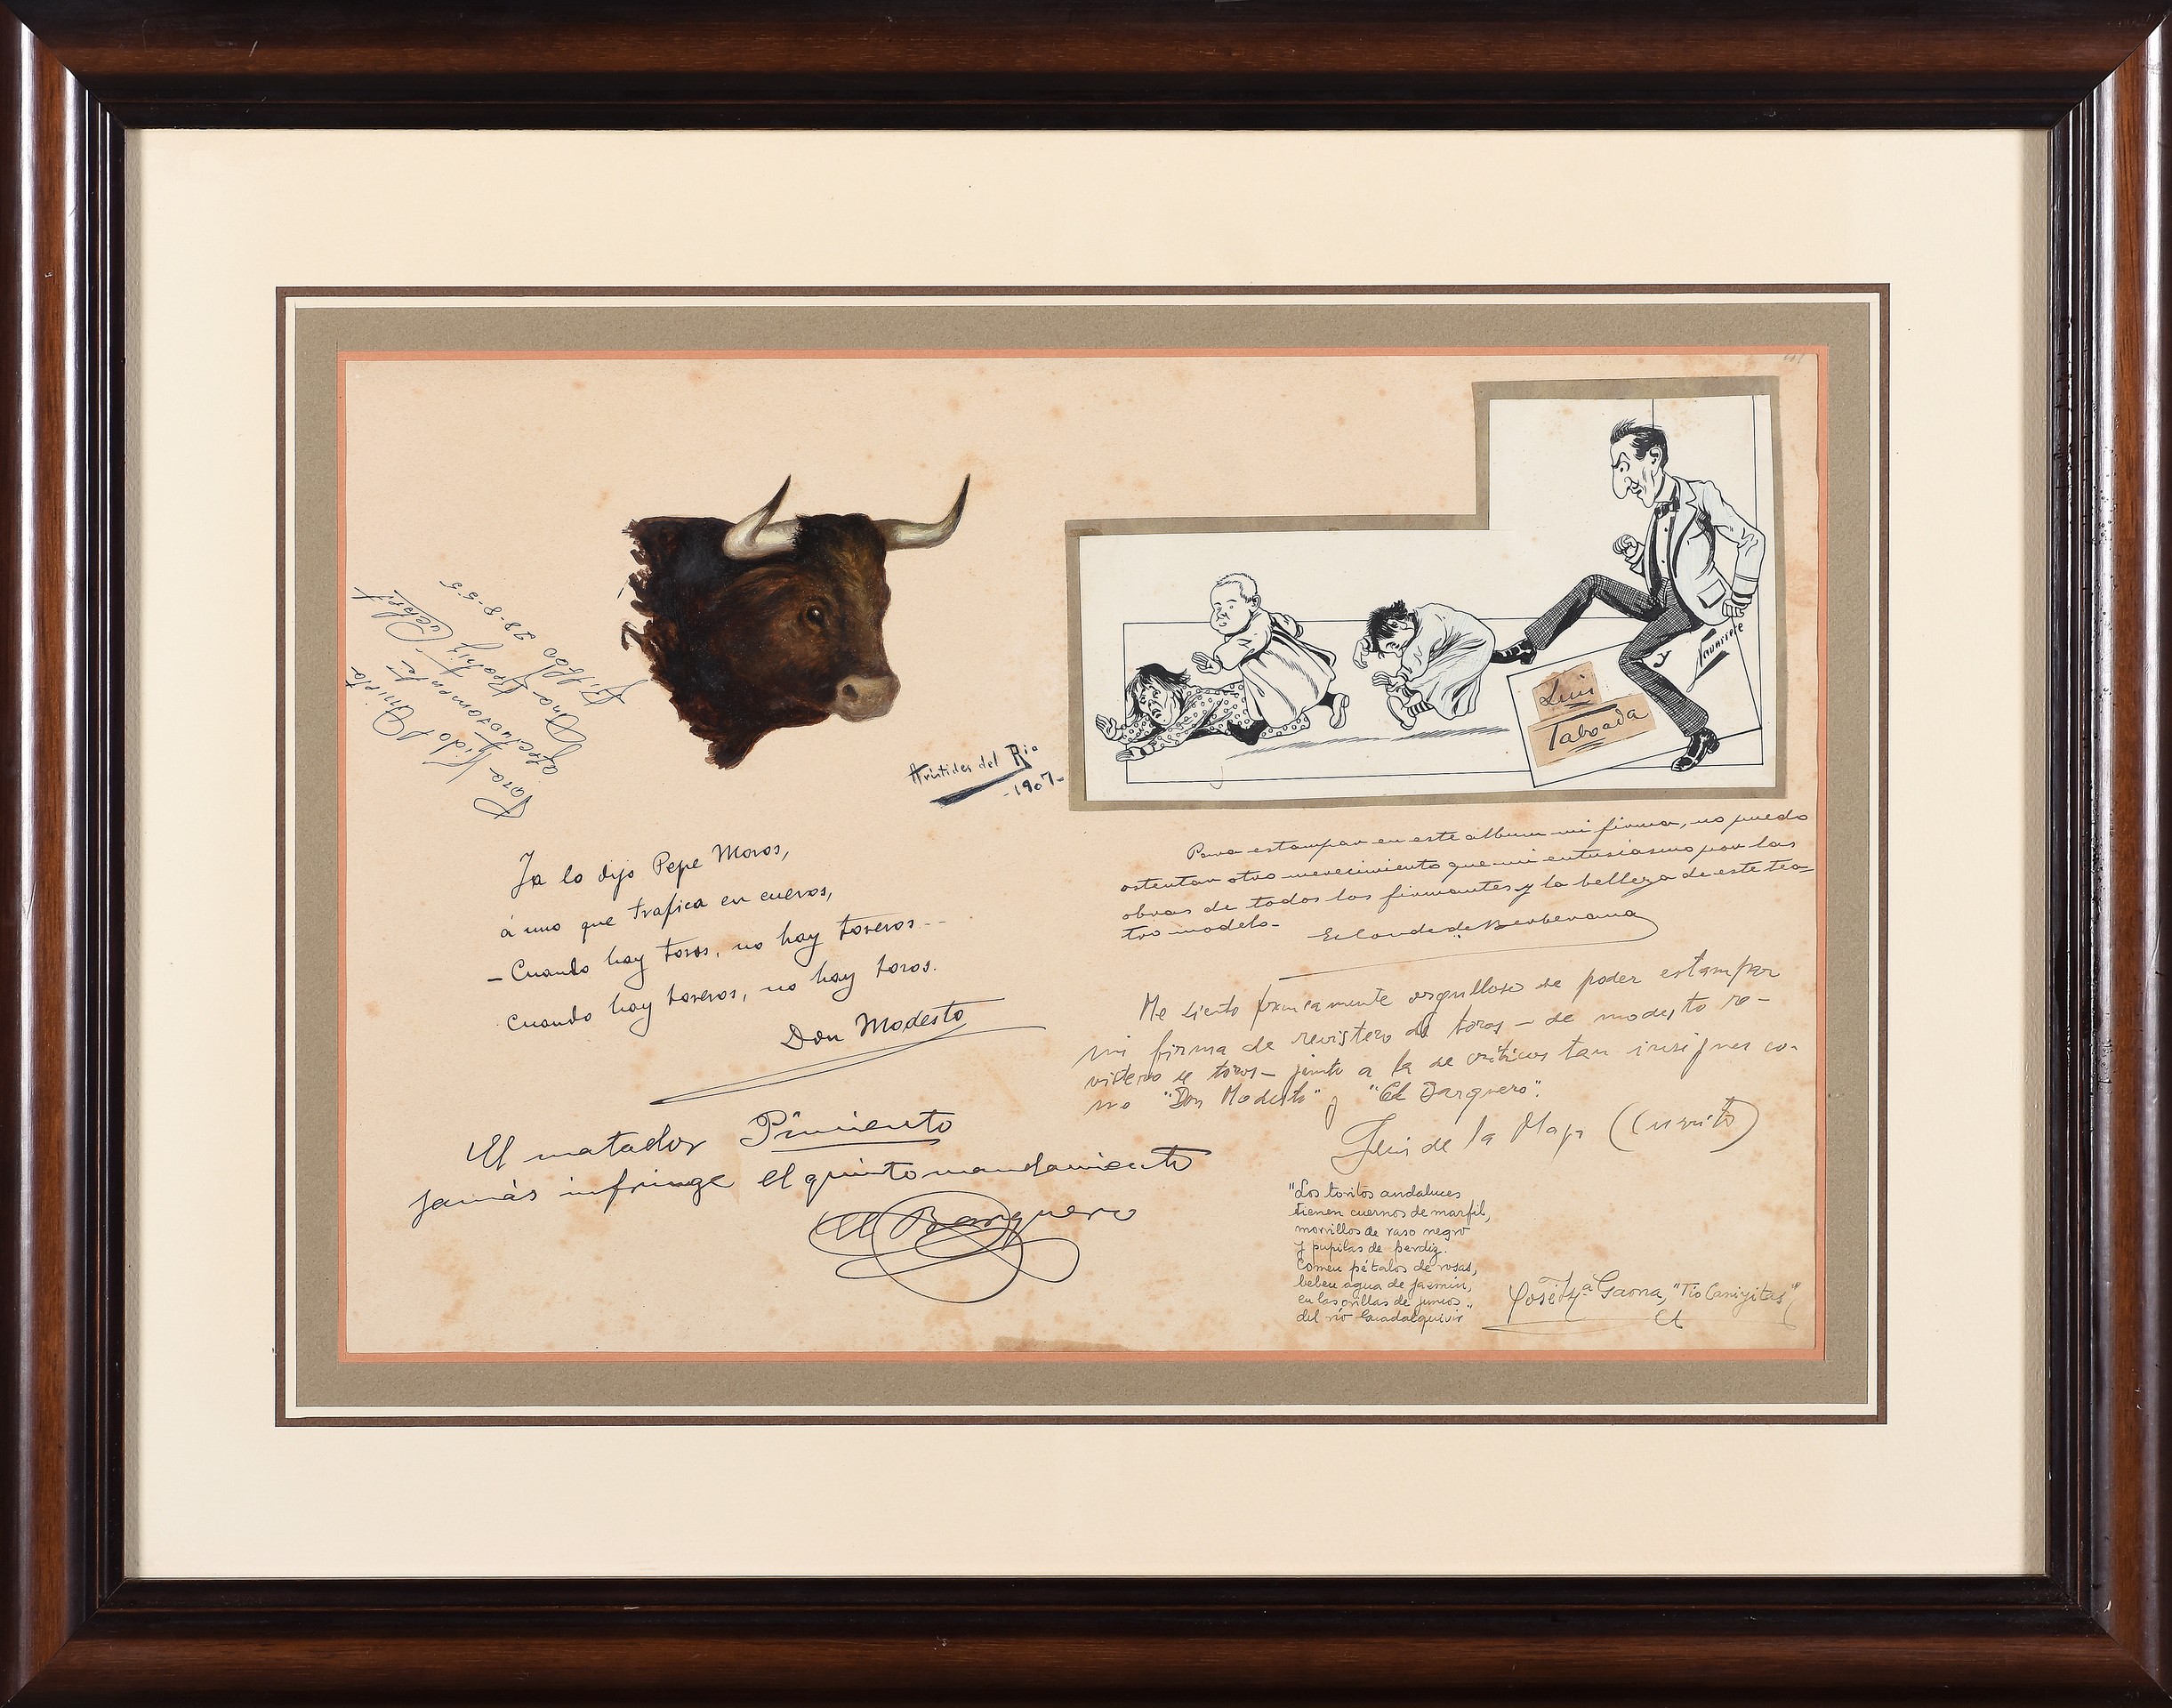 Para Vidal
afectuosamente
Ana
28-8-55
Aristides del Rio
-1907-
Luis
Taboada
y
Navarrete
Ya lo dijo Pepe Moros,
á uno que trafica en cueros,
- Cuando hay toros, no hay toreros --
Cuando hay toreros, no hay toros.
Don Modesto
El matador Pimiento
jamás infringe el quinto mandamiento
El Barquero
Para estampar en este album mi firma, no puedo
ostentar otro merecimiento que mi entusiasmo por las
obras de todos los firmantes y la belleza de este tea-
tro modelo.
El Conde de Berberana
Me siento francamente orgulloso de poder estampar
mi firma de revistero de toros — de modesto re-
vistero de toros — junto a la de críticos tan insignes co-
mo "Don Modesto" y "El Barquero".
Luis de la (Currito)
"Los toritos andaluces
tienen cuernos de marfil,
morrillos de raso negro
y pupilas de perdiz.
Comen pétalos de rosas,
beben agua de jazmín,
en las orillas de juncos
del río Guadalquivir"
José Mª Gaona, "Tio Caniyitas"